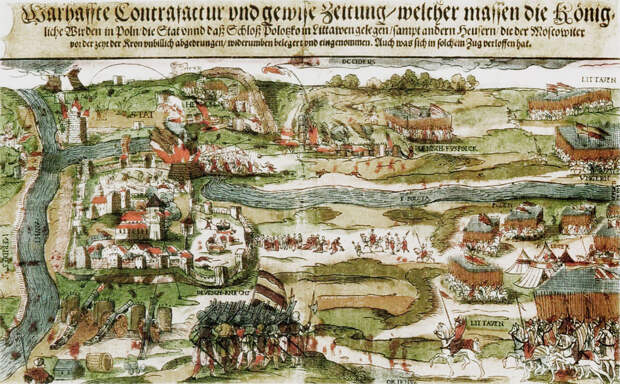 Warhaffte Contrafactur vnd gewise Zeitung / welcher massen die König-
liche Wirden in Poln / die Stat vnnd daß Schloß Polotzko in Littawen gelegen / sampt andern Heusern / die der Moscowiter
vor der zeyt der Kron vnbillich abgedrungen / widerumben belegert vnd eingenommen. Auch was sich in solchem Zug verloffen hat.
OCCIDENS
LITTAVEN
STAT
LITTAVEN